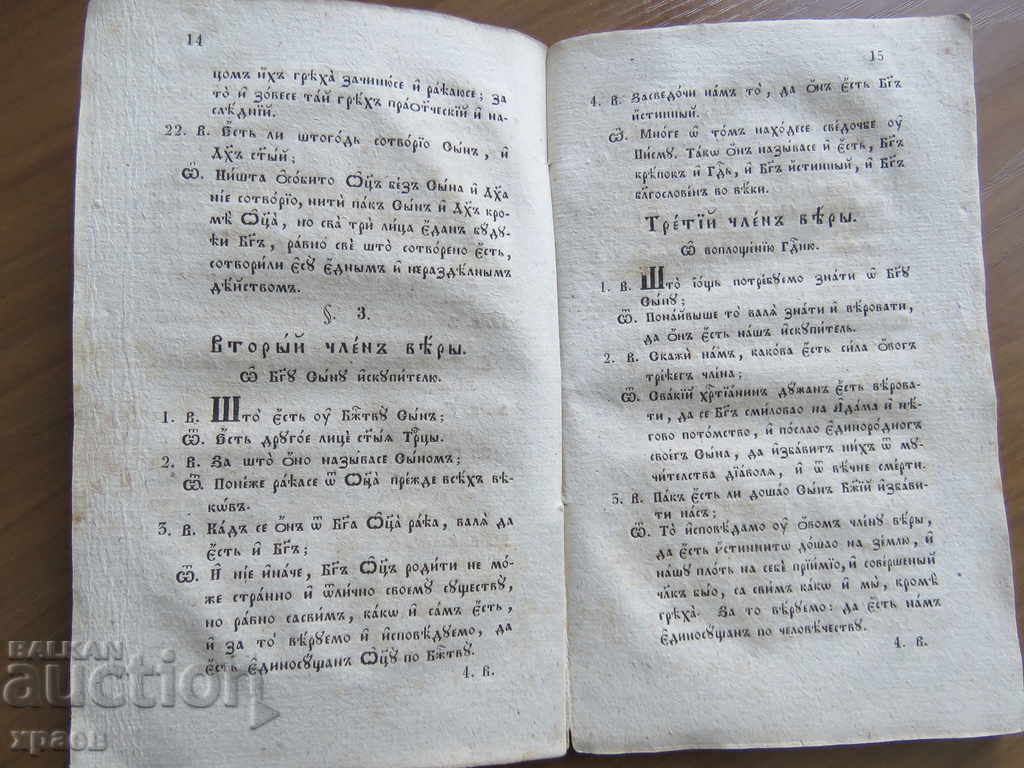 14
цомъ и҆́хъ грѣха̀ зачинюсе и҆ раѣаюсе; за
то̀ и҆ зо́весе та́й грѣхъ пра́ѻтческїй и҆ на-
слѣднїй.
22. В. Є҆́сть ли што̀годь сотво́рїо Сы́нъ, и҆
Дх҃ъ ст҃ы́й;
Ѿ. Ни́шта ѻ҆со́бито Ѻ҆ц҃ъ бе́зъ Сы́на и҆ Дх҃а
нїе сотво́рїо, ни́ти па́къ Сы́нъ и҆ Дх҃ъ кро-
мѣ̀ Ѻ҆ц҃а̀, но сва̀ трѝ ли́ца є҆да́нъ бꙋдꙋ-
ћи Бг҃ъ, ра́вно свѐ што̀ сотворено є҆́сть,
сотвори́ли є҆сꙋ̀ є҆́днымъ и҆ нераздѣ́лнымъ
дѣ́йствомъ.
§. 3.
Вто́рый чле́нъ вѣ́ры.
Ѡ҆ Бг҃ꙋ Сы́нꙋ и҆скꙋпи́телю.
1. В. Што̀ є҆́сть ᲂу҆ Бж҃твꙋ̀ Сы́нъ;
Ѿ. Є҆́сть дрꙋго́е лицѐ ст҃ы́ѧ Трⷪ҇цы.
2. В. За што̀ ѻ҆́но называ́се Сы́номъ;
Ѿ. Поне́же раѣасе ѿ Ѻ҆ц҃а̀ пре́жде всѣ́хъ вѣ-
кѡ́въ.
3. В. Ка́дъ се ѻ҆́нъ ѿ Бг҃а Ѻ҆ц҃а̀ раѣа, ва́лѧ да
є҆́сть и҆ Бг҃ъ;
Ѿ. И҆ нїе и҆на́че, Бг҃ъ Ѻ҆ц҃ъ роди́ти не мо́-
же стра́нно и҆ ѿли́чно своемꙋ̀ сꙋществꙋ̀,
но ра́вно сасви́мъ, ка́кѡ и҆ са́мъ є҆́сть,
и҆ за то̀ вѣ́рꙋемо и҆ и҆сповѣ́дꙋемо, да
є҆́сть є҆диносꙋ́щанъ Ѻ҆ц҃ꙋ̀ по Бж҃твꙋ̀.
4. В.
15
4. В. Засведо́чи на́мъ то̀, да ѻ҆́нъ є҆́сть Бг҃ъ
и҆́стинный.
Ѿ. Мно́ге ѡ҆ то́мъ нахо́десе сведо́чбе ᲂу҆
Пи́смꙋ. Та́кѡ ѻ҆́нъ называсе и҆ є҆́сть, Бг҃ъ
крѣ́покъ и҆ Гдⷭ҇ь, и҆ Бг҃ъ и҆́стинный, и҆ Бг҃ъ
бл҃гослове́нъ во вѣ́ки.
Тре́тїй чле́нъ вѣ́ры.
Ѡ҆ воплоще́нїю Гдⷭ҇ню.
1. В. Што̀ і҆о́щъ потре́бꙋемо зна́ти ѡ҆ Бг҃ꙋ
Сы́нꙋ;
Ѿ. Пона́йвыше то̀ ва́лѧ зна́ти и҆ вѣ́ровати,
да ѻ҆́нъ є҆́сть на́шъ и҆скꙋпи́тель.
2. В. Скажѝ на́мъ, ка́кова є҆́сть си́ла ѻ҆́вогъ
тре́ћегъ чле́на;
Ѿ. Сва́кїй хрⷭ҇тїа́нин дꙋ́жанъ є҆́сть вѣ́рова-
ти, да се Бг҃ъ смиловао на А҆да́ма и҆ нѣ́-
гово пото́мство, и҆ по́слао є҆диноро́дногъ
своегъ Сы́на, да и҆зба́витъ ни́хъ ѿ мꙋ-
чи́телства дїа́вола, и҆ ѿ вѣ́чне сме́рти.
3. В. Па́къ є҆́сть ли до́шао Сы́нъ Бж҃їй и҆зба́ви-
ти на́съ;
Ѿ. То̀ и҆сповѣ́дамо ᲂу҆ ѻ҆́вомъ чле́нꙋ вѣ́ры,
да є҆́сть и҆́стиннитѡ до́шао на зе́млю, и҆
на́шꙋ пло́ть на себѐ прїимїо, и҆ соверше́ный
чл҃къ бы́о, са сви́мъ ка́кѡ и҆ мы̀, кромѣ̀
грѣха̀. За то̀ вѣ́рꙋемо: да є҆́сть на́мъ
є҆диносꙋ́щанъ по человѣ́чествꙋ.
4. В.
BALKAN
auction
храев